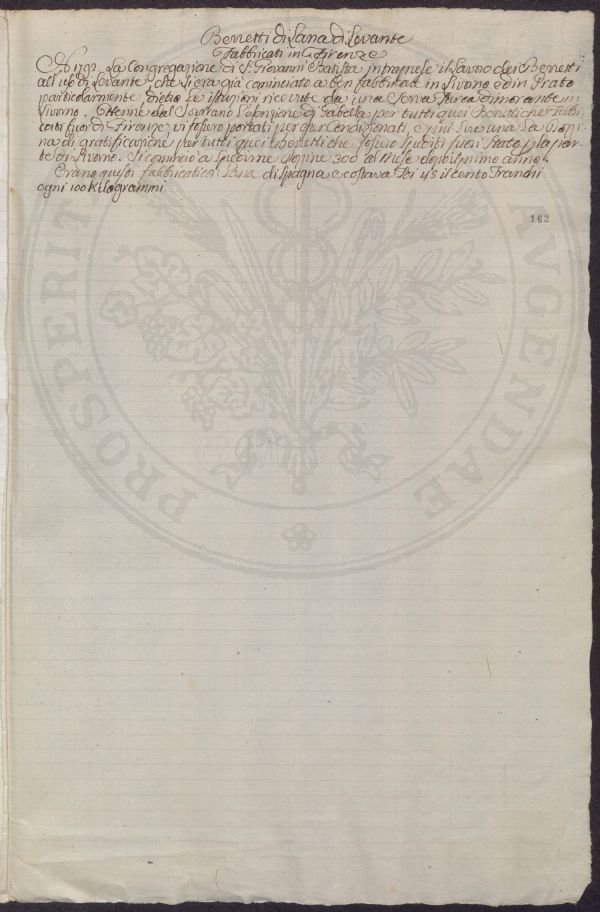 Berretti di Lana di Levante
Fabbricati in Firenze
La Congregazione di S. Giovanni Batista intraprese il Lavoro dei Berretti
all'uso di Levante, che si era già cominciato a ben fabbricare in Livorno ed in Prato
particolarmente dietro le istruzioni ricevute da una Serva Turca dimorante in
Livorno. Ottenne dal Sovrano l'esenzione di Gabella per tutti quei Berretti che fabbri
cati fuori di Firenze vi fossero portati per darci condizionati, e più Lire una la Dozzi
na di gratificazione per tutti quei Berretti che fossero spediti fuori Stato p la por
ta di Livorno. Si cominciò a spedirne Dozine 300 al Mese
Erano questi fabbricati con Lana di Spagna e costava il cento Franchi
ogni 100 Kilogrammi
162
PROSPERITATI AVGENDAE